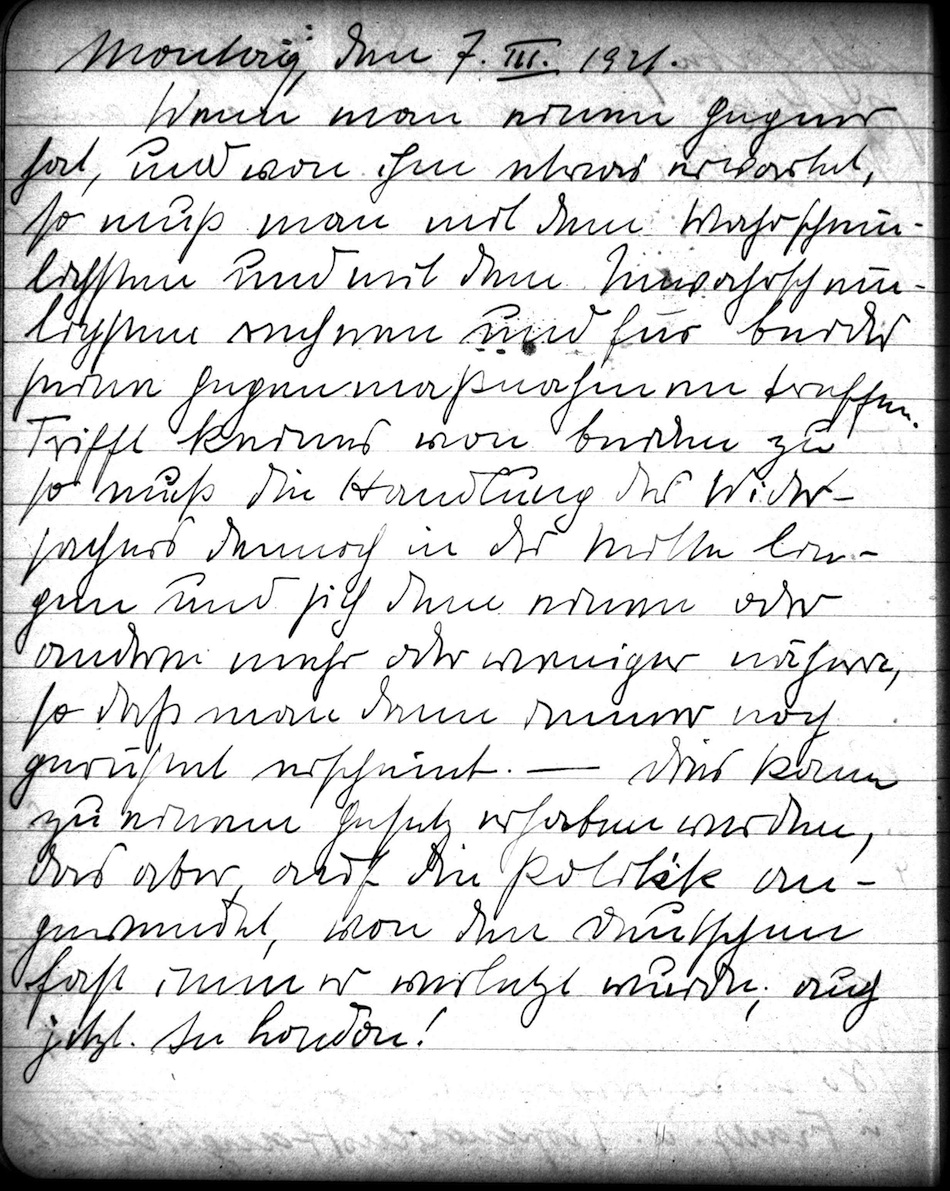 Montag, den 7. III. 1921.
Wenn man einen Gegner
hat, und von ihm etwas erwartet,
so muß man mit dem Wahrschein-
lichsten und mit dem Unwahrschein-
lichsten rechnen und für beides
seine Gegenmaßnahmen treffen.
Trifft keines von beiden zu
so muß die Handlung des Wider-
sachers dennoch in der Mitte lie-
gen und sich dem einen oder
andern mehr oder weniger nähern,
so daß man dann immer noch
gerüstet erscheint. — Dies kann
zu einem Gesetz erhoben werden,
das aber, auf die Politik an-
gewendet, von den Deutschen
fast immer verletzt wurde; auch
jetzt. In London!